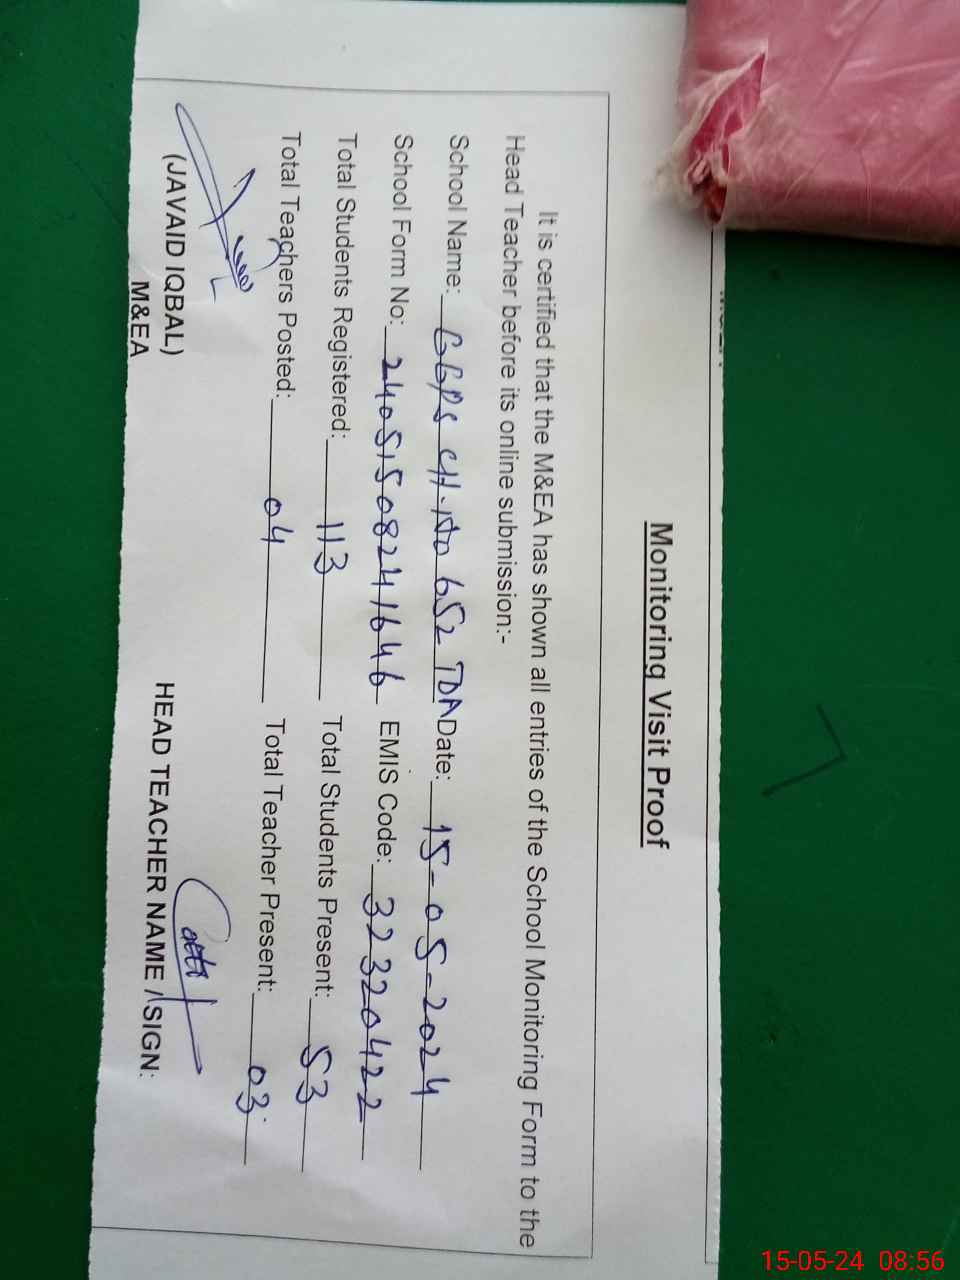 Monitoring Visit Proof
It is certified that the M&EA has shown all entries of the School Monitoring Form to the
Head Teacher before its online submission:-
School Name: GGPS CH-No 652 TDA Date: 15-05-2024
School Form No: 24051508241646 EMIS Code: 32320422
Total Students Registered: 113 Total Students Present: 53
Total Teachers Posted: 04 Total Teacher Present: 03
(JAVAID IQBAL)
M&EA
HEAD TEACHER NAME / SIGN:
15-05-24 08:56